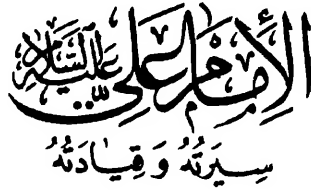 الإِمَامُ عَلِيٌّ عَلَيْهِ السَّلَامُ
سِيرَتُهُ وَقِيَادَتُهُ